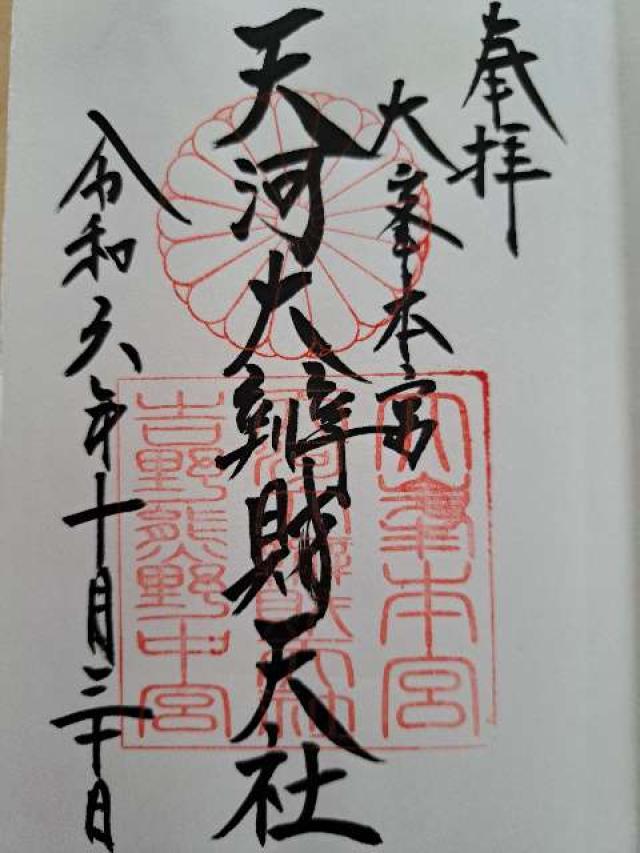 奉拝
大峯本宮
天河大辨財天社
令和六年十月三十日
大峯本宮
吉野熊野中宮